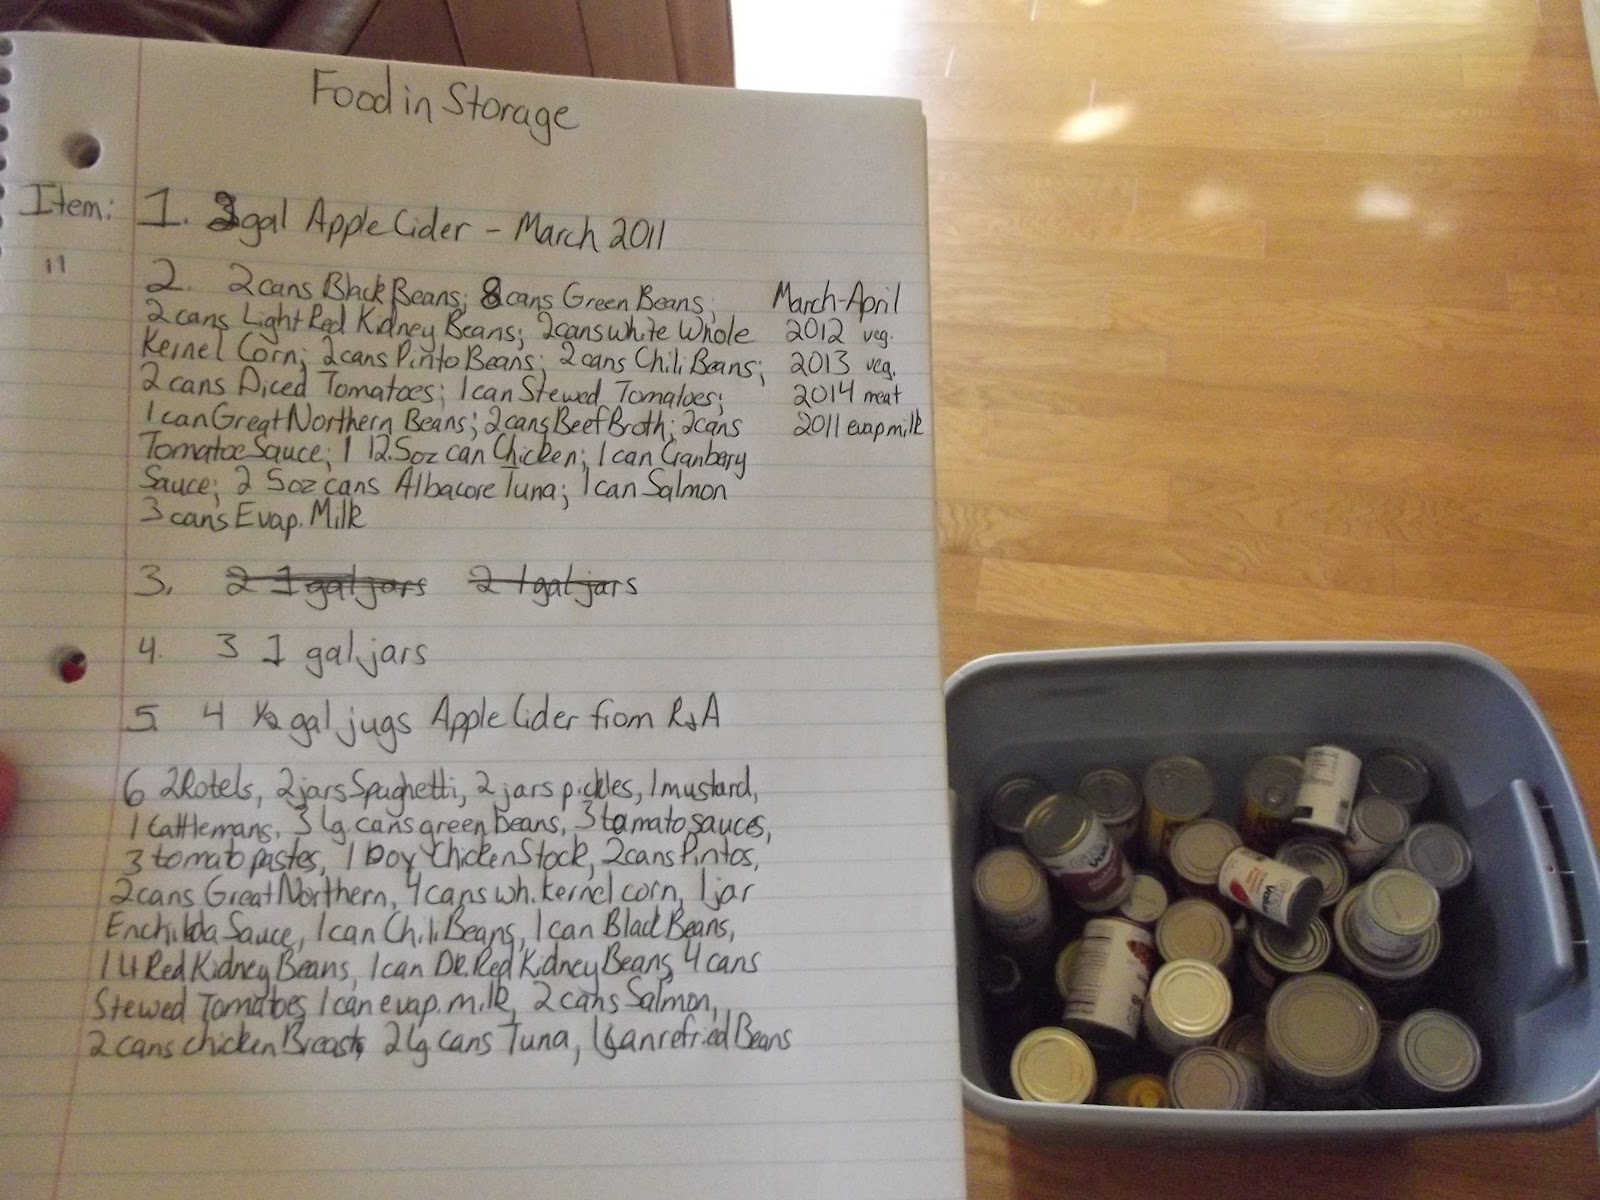 Food in Storage
Item: 1. 3gal Apple Cider - March 2011
" 2. 2 cans Black Beans; 8 cans Green Beans; March-April
2 cans Light Red Kidney Beans; 2 cans white Whole 2012 veg.
Kernel Corn; 2 cans Pinto Beans; 2 cans Chili Beans; 2013 veg.
2 cans Diced Tomatoes; 1 can Stewed Tomatoes; 2014 meat
1 can Great Northern Beans; 2 cans Beef Broth; 2 cans 2011 evap milk
Tomatoe Sauce; 1 12.5oz can Chicken; 1 can Cranbery
Sauce; 2 5oz cans Albacore Tuna; 1 can Salmon
3 cans Evap. Milk
3. 2 1 gal jars 2 1 gal jars
4. 3 1 gal. jars
5. 4 ½ gal jugs Apple Cider from R&A
6 2 Rotels, 2 jars Spaghetti, 2 jars pickles, 1 mustard,
1 Cattlemans, 3 lg. cans green beans, 3 tomato sauces,
3 tomato pastes, 1 box Chicken Stock, 2 cans Pintos,
2 cans Great Northern, 4 cans wh. kernel corn, 1 jar
Enchilda Sauce, 1 can Chili Beans, 1 can Black Beans,
1 Red Kidney Beans, 1 can Dk. Red Kidney Beans, 4 cans
Stewed Tomatoes 1 can evap. milk, 2 cans Salmon,
2 cans chicken Breasts 2 lg cans Tuna, 1 can refried Beans